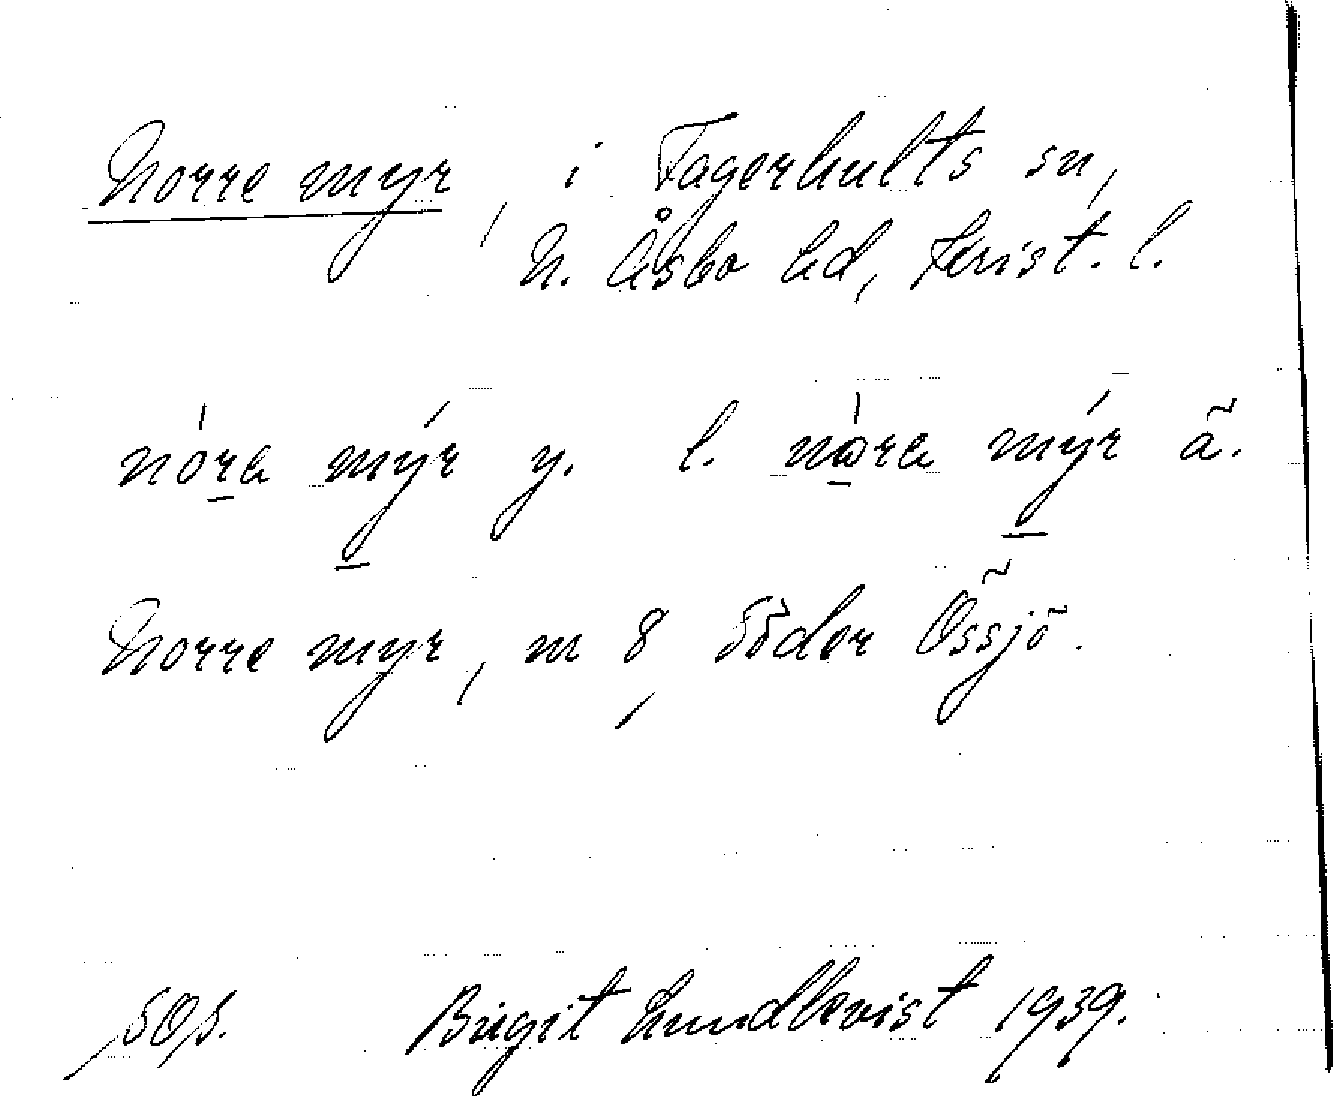 Norre myr, i Fagerhults sn,
N. Åsbo hd, Krist. l.
nóra mýr y. l. nòra mýr ä.
Norre myr, m 8, Söder Össjö.
Birgit Lundkvist 1939.